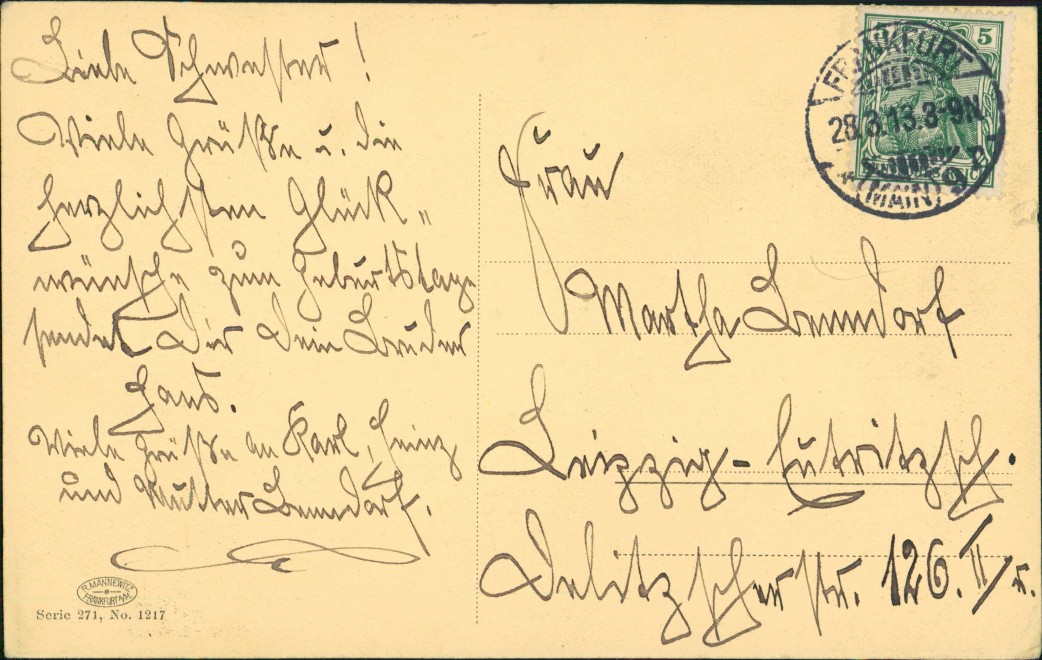 Liebe Schwester!
Viele Grüße u. die
herzlichsten Glück„
wünsche zum Geburtstage
sendet Dir Dein Bruder
Hans.
Viele Grüße an Karl, Heinz
und Mutter Benndorf.
R. MANNEWITZ
FRANKFURT A/M.
Serie 271, No. 1217
5
FRANKFURT
28.3.13.8-9N
(MAIN)
Frau
Martha Benndorf
Leipzig-Eutritzsch.
Delitzscherstr. 126. II/r.